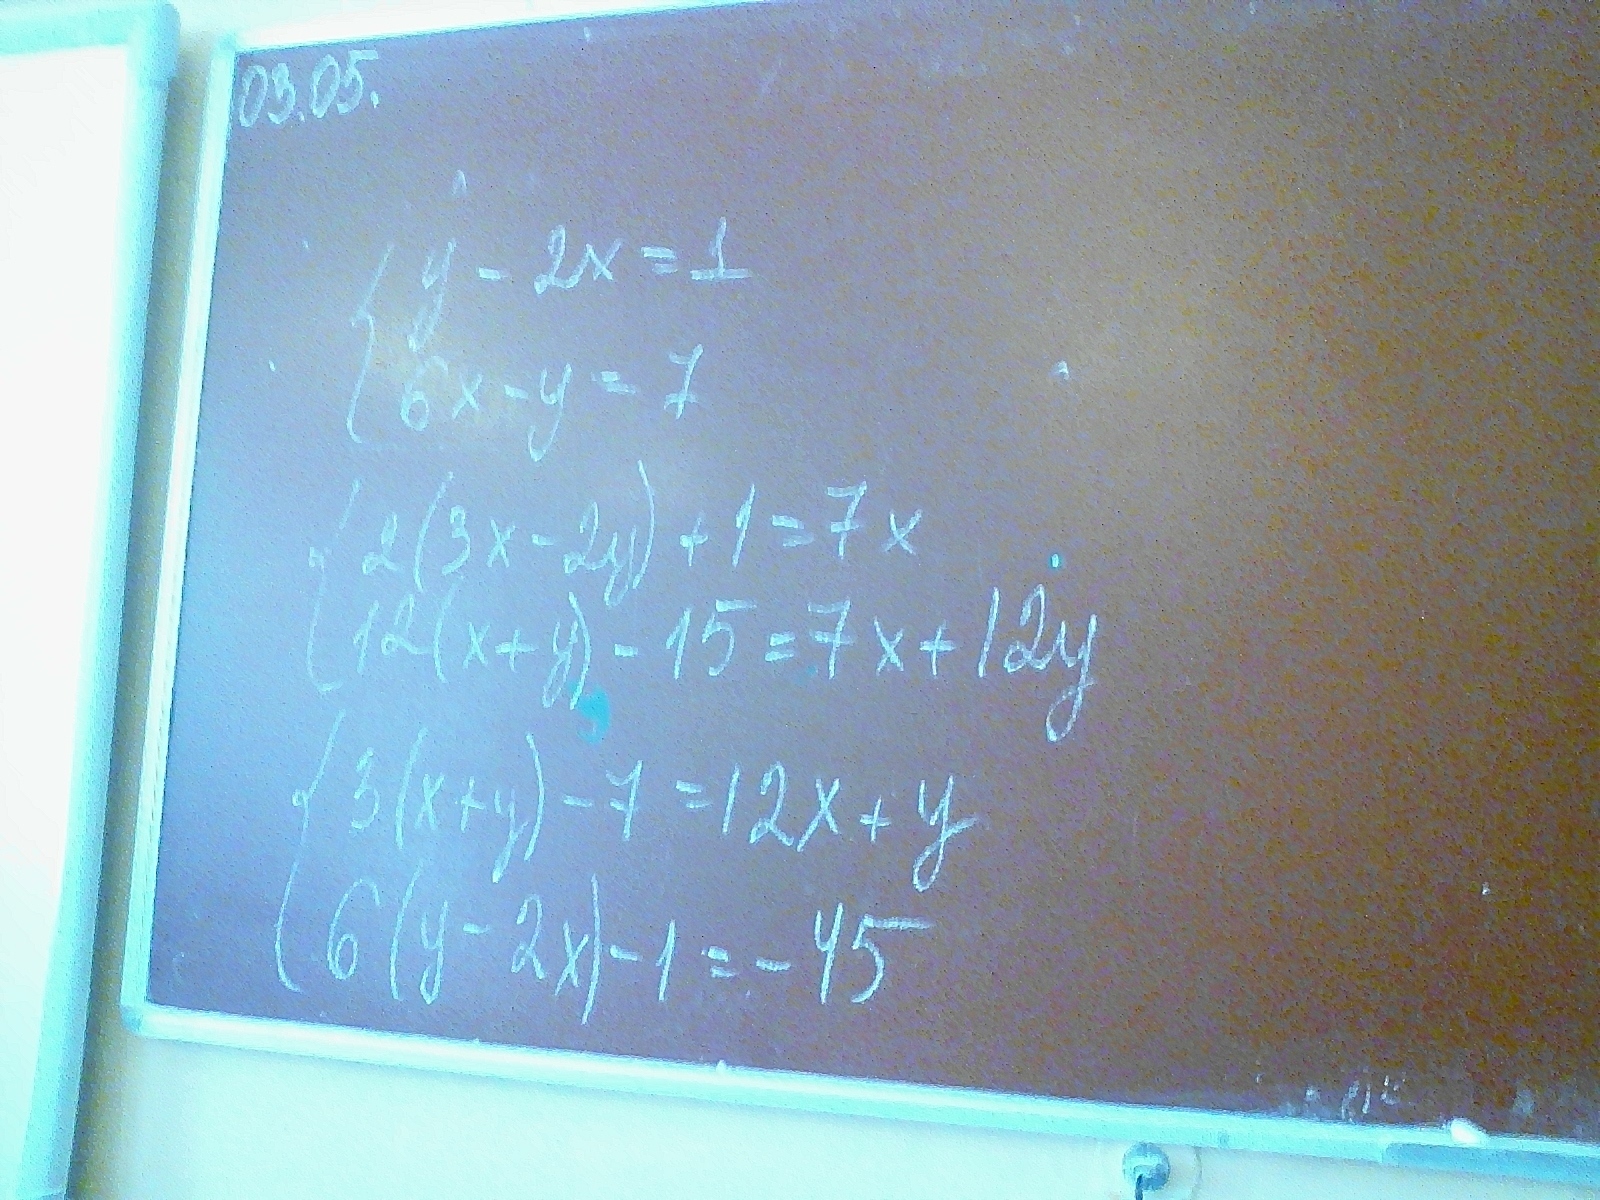 03.05.
y - 2x = 1
6x - y = 7
2(3x - 2y) + 1 = 7x
12(x + y) - 15 = 7x + 12y
3(x + y) - 7 = 12x + y
6(y - 2x) - 1 = - 45